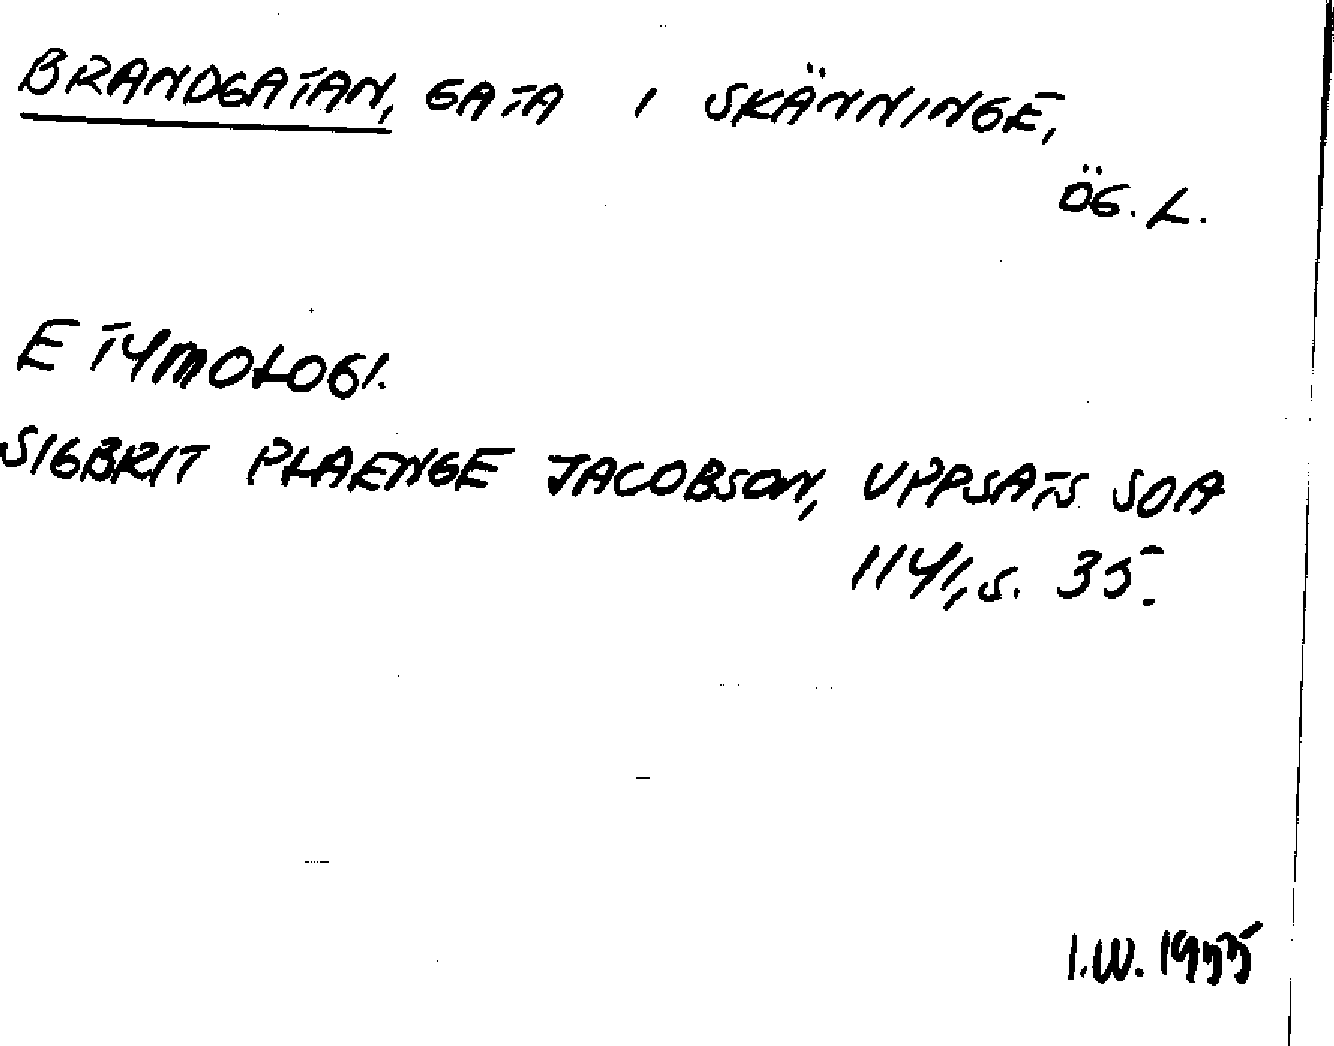 BRANDGATAN, GATA I SKÄNNINGE,
ÖG. L.
ETYMOLOGI.
SIGBRIT PLAENGE JACOBSON, UPPSATS SOA
1141, S. 35.
I.W. 1955